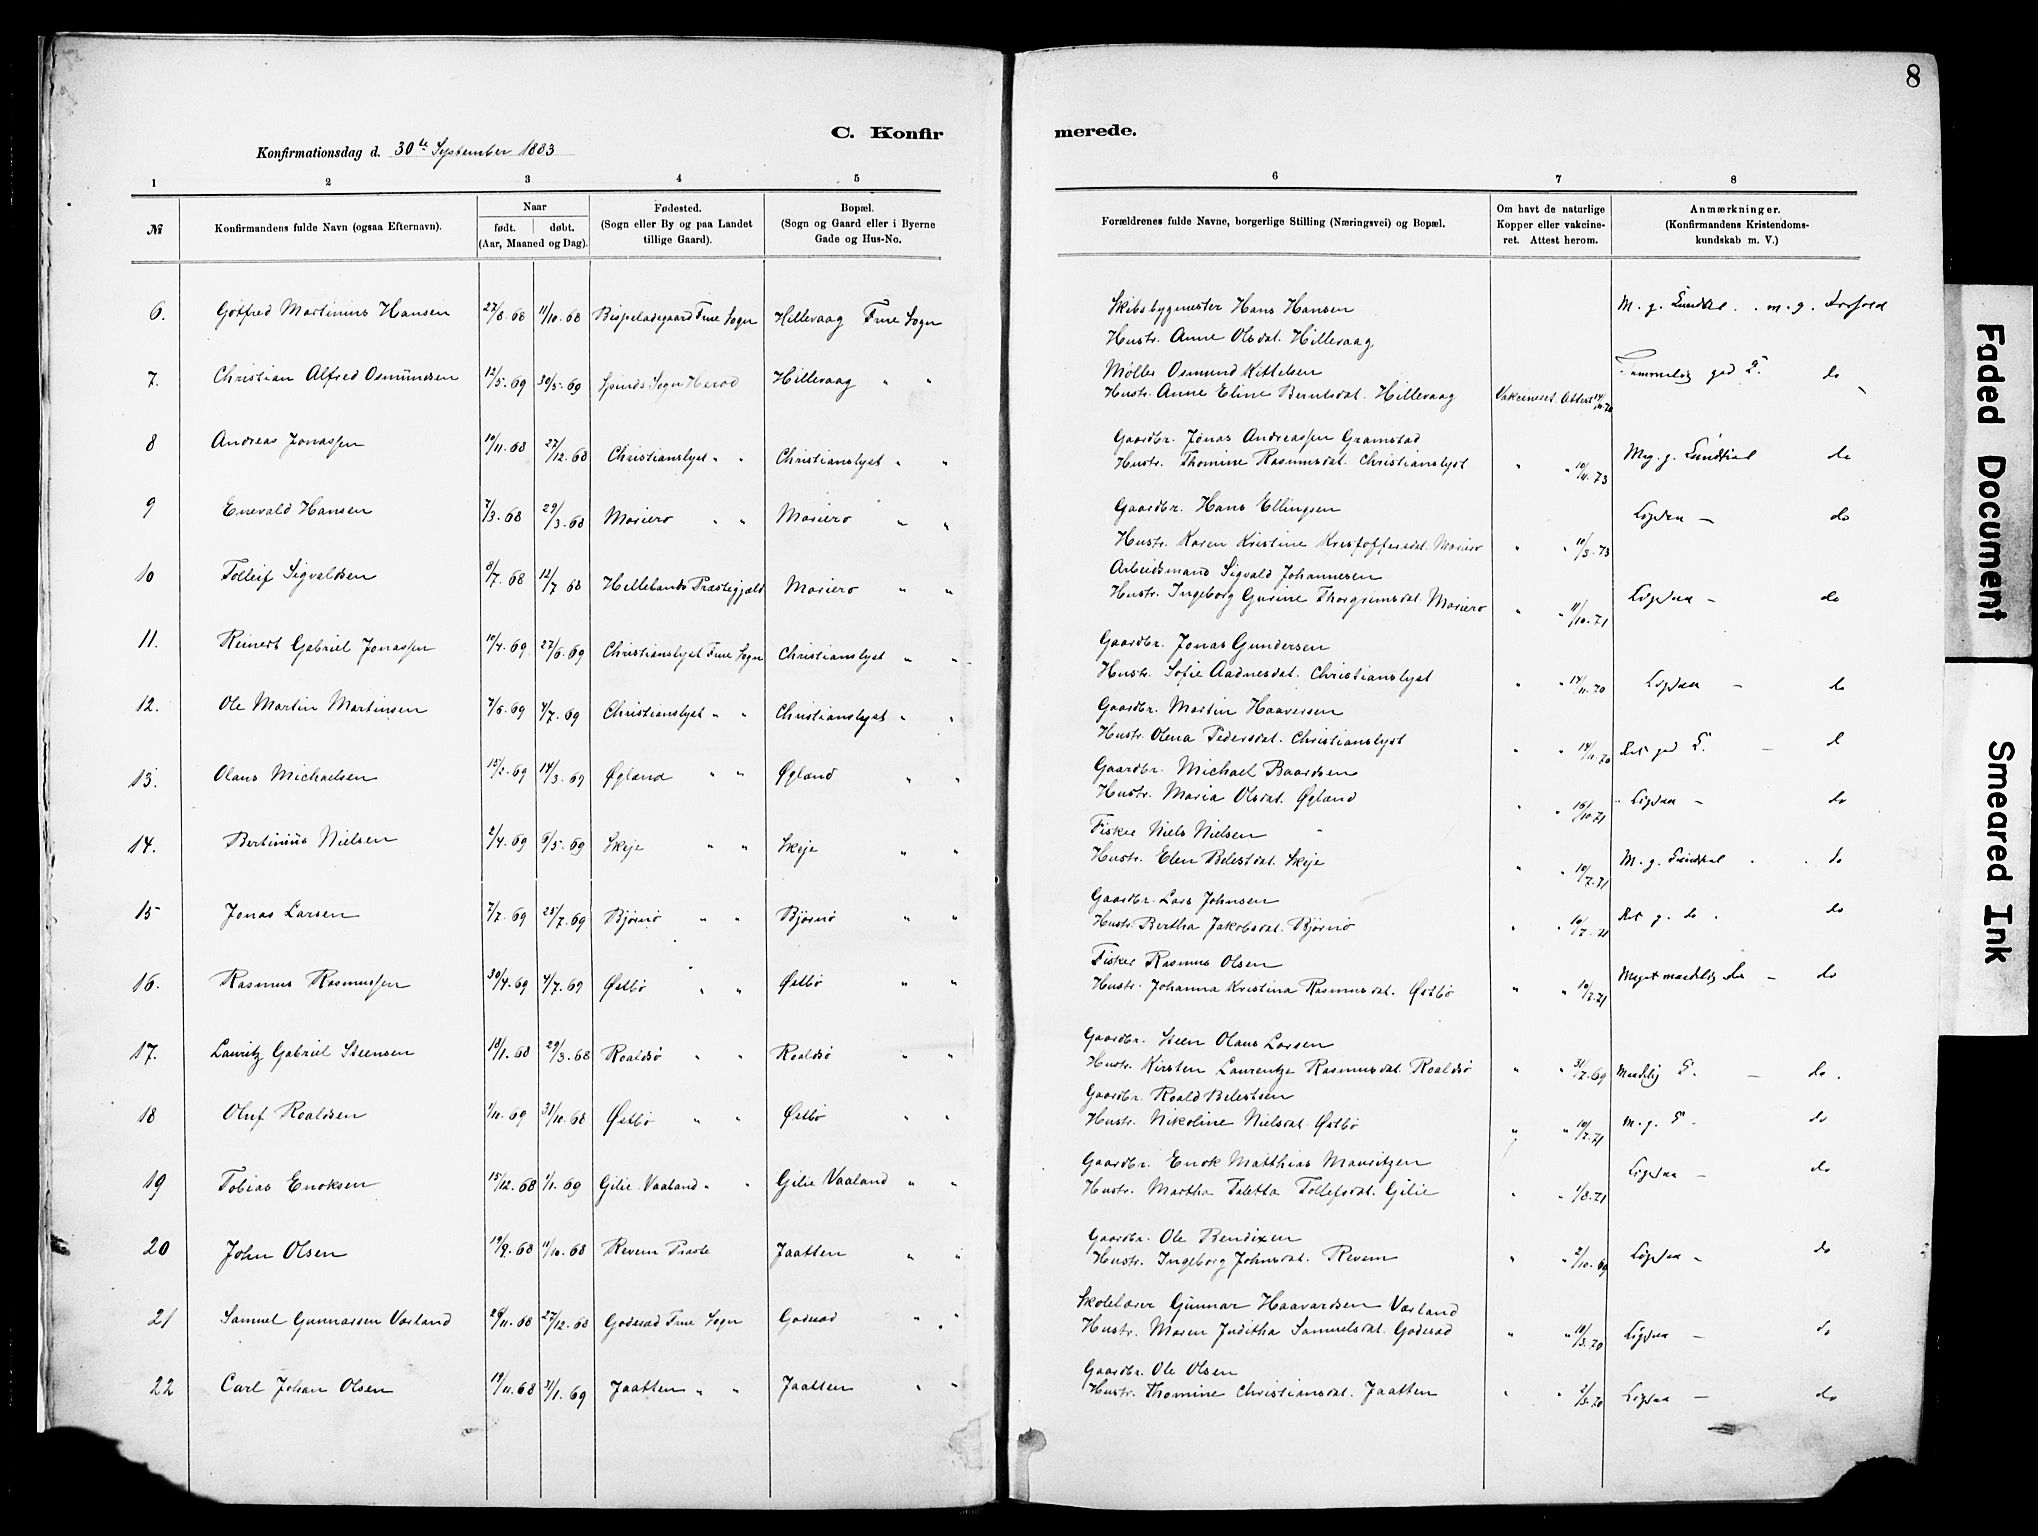 8
C. Konfirmerede.
Konfirmationsdag d. 30te September 1883
1 2 3 4 5 6 7 8
№ Konfirmandens fulde Navn (ogsaa Efternavn). Naar født. døbt. (Aar, Maaned og Dag). Fødested. (Sogn eller By og paa Landet tillige Gaard). Bopæl. (Sogn og Gaard eller i Byerne Gade og Hus-No. Forældrenes fulde Navne, borgerlige Stilling (Næringsvei) og Bopæl. Om havt de naturlige Kopper eller vakcineret. Attest herom. Anmærkninger. (Konfirmandens Kristendomskundskab m. V.)
6. Gotfred Martinius Hansen 27/8.68 11/10.68 Bispeladegaard Frue Sogn Hillevaag Frue Sogn Skibsbygmester Hans Hansen M. g. Kundskab. m. g. Forhold
Hustr. Anne Olsdat. Hillevaag
7. Christian Alfred Osmundsen 12/5.69 30/5.69 Spinds Sogn Herad Hillevaag " " Møller Osmund Kittelsen
Hustr. Anne Eline Berntsdat. Hillevaag Vakcineret Attest 14/11.70 Temmelig god K. do
8 Andreas Jonassen 10/11.68 27/12.68 Christianslyst " " Christianslyst " " Gaardbr. Jonas Andreassen Gramstad
Hustr. Thomine Rasmusdat. Christianslyst " " 10/4.73 Meg. g. Kundskab do
9 Enevald Hansen 7/3.68 29/3.68 Mariero " " Mariero " " Gaardbr. Hans Ellingsen
Hustr. Karen Kristine Kristoffersdat. Mariero " " 10/3.73 Ligesaa — do
10 Tolleif Sigvaldsen 9/7.68 12/7.68 Hellelands Præstegjæld Mariero " " Arbeidsmand Sigvald Johannesen
Hustr. Ingeborg Gurine Thorgrimsdat. Mariero " " 11/10.71 Ligesaa — do
11. Reinert Gabriel Jonassen 10/4.69 27/6.69 Christianslyst Frue Sogn Christianslyst " " Gaardbr. Jonas Gundersen
Hustr. Sofie Aadnesdat. Christianslyst " " 14/11.70 Ligesaa — do
12. Ole Martin Martinsen 7/6.69 4/7.69 Christianslyst " " Christianslyst " " Gaardbr. Martin Haaversen
Hustr. Olena Pedersdat. Christianslyst " " 14/11.70 Ret god K. — do
13. Olaus Michaelsen 15/2.69 14/3.69 Øgland " " Øgland " " Gaardbr. Michael Baardsen
Hustr. Maria Olsdat. Øgland " 16/10.71 Ligesaa — do
14. Bertinius Nielsen 2/4.69 9/5.69 Skeje " " Skeje " " Fisker Niels Nielsen
Hustr. Elen Belestdat. Skeje " " 10/7.71 M. g. Kundskab . . do
15 Jonas Larsen 7/7.69 25/7.69 Bjørnø " " Bjørnø " " Gaardbr. Lars Johnsen
Hustr. Bertha Jakobsdat. Bjørnø " " 10/7.71 Ret g. do . do
16. Rasmus Rasmussen 30/4.69 4/7.69 Østbø " " Østbø " " Fisker Rasmus Olsen
Hustr. Johanna Kristina Rasmusdat. Østbø " " 10/7.71 Meget maadelig do — do
17. Lauritz Gabriel Steensen 18/1.68 29/3.68 Roaldsø " " Roaldsø " " Gaardbr. Steen Olaus Larsen
Hustr. Kirsten Laurentze Rasmusdat. Roaldsø " " 31/7.69 Maadelig K. — do.
18 Oluf Roaldsen 31/10.68 Østbø " " Østbø " " Gaardbr. Roald Belestsen
Hustr. Nikoline Nielsdat. Østbø " " 10/7.71 M. g. K. do
19 Tobias Enoksen 15/12.68 1/1.69 Gilie Vaaland " " Gilie Vaaland " " Gaardbr. Enok Matthias Mauritzen
Hustr. Martha Taletta Tollefsdat. Gilie " " 1/8.71 Ligesaa — do
20 John Olsen 19/9.68 11/10.68 Revem Præste Jaatten " " Gaardbr. Ole Bendixen
Hustr. Ingeborg Johnsdat. Revem " " 2/10.69 Ligesaa — do
21 Samuel Gunnarsen Varland 26/11.68 27/12.68 Godesad Frue Sogn Godesad " " Skolelærer Gunnar Haavardsen Varland
Hustr. Maren Juditha Samuelsdat. Godesad " " 10/3.70 Ligesaa — do
22 Carl Johan Olsen 19/11.68 31/1.69 Jaatten " " Jaatten " " Gaardbr. Ole Olsen
Hustr. Thomine Christiansdat. Jaatten " " Ligesaa — do
Faded Document
Smeared Ink